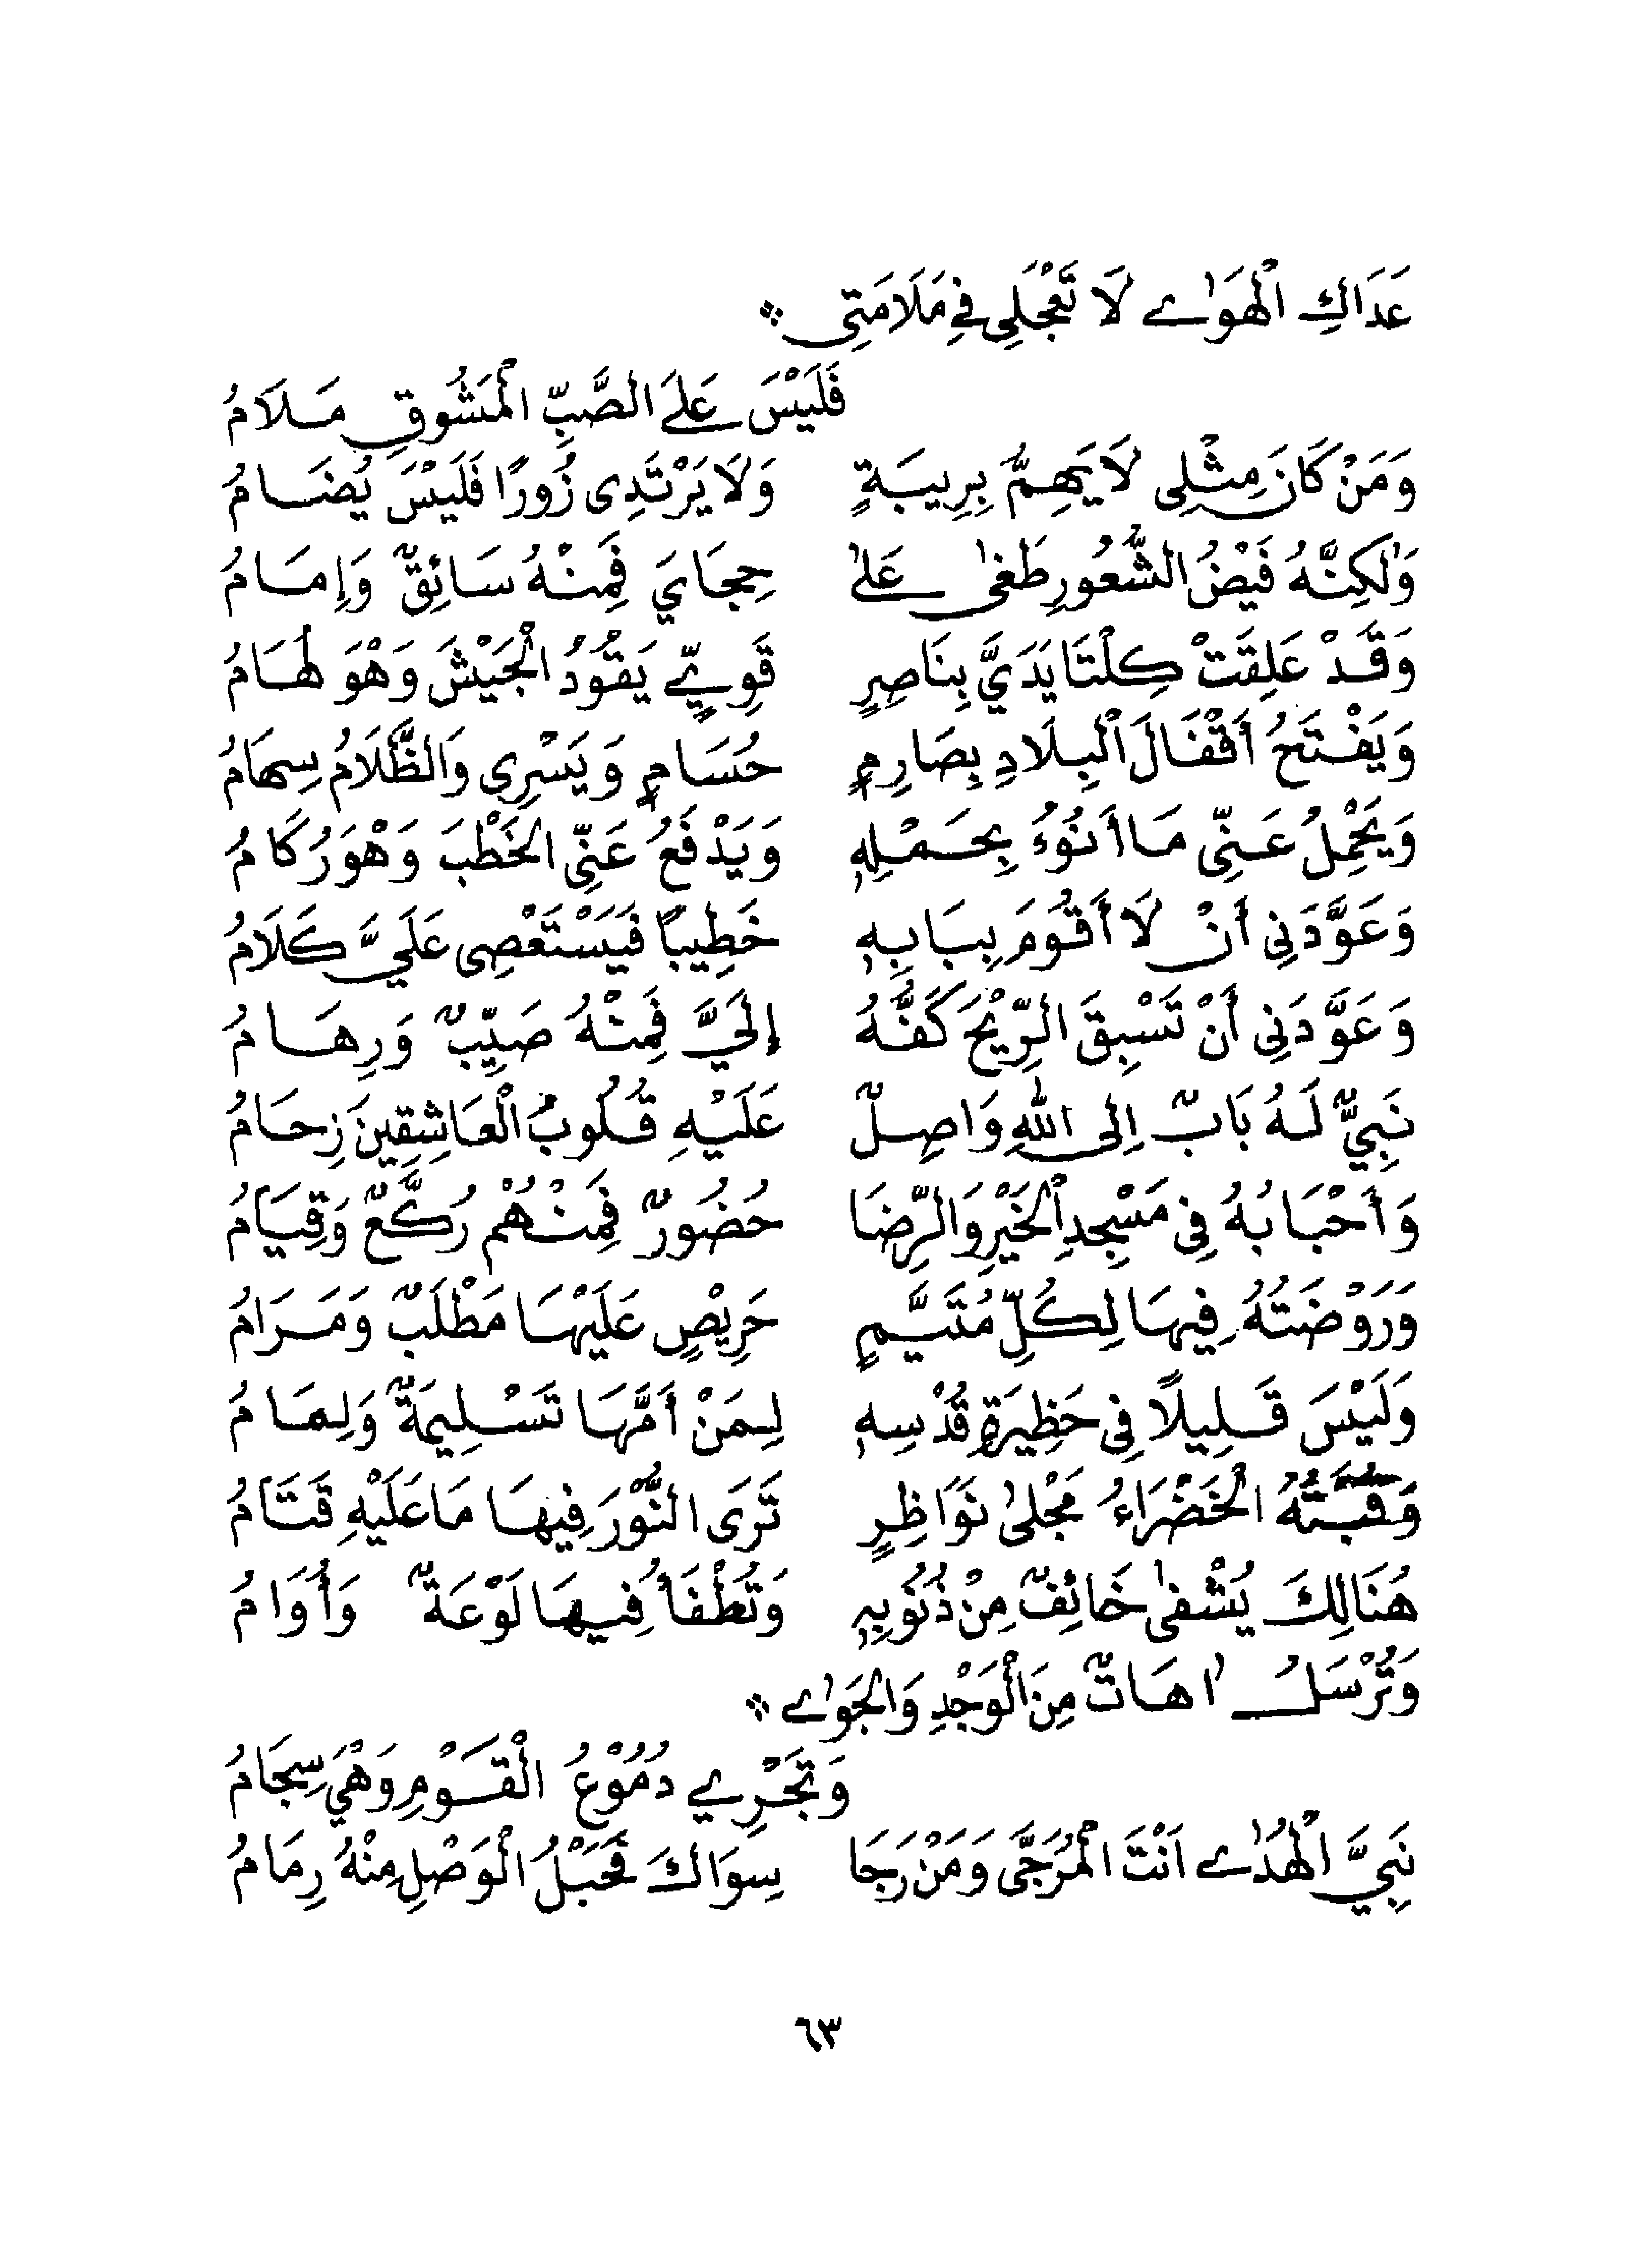 عَدَاكِ الْهَوٰى لَا تَعْجَلِى فِي مَلَامَتِى ؞
فَلَيْسَ عَلَى الصَّبِّ الْمَشُوقِ مَلَامُ
وَمَنْ كَانَ مِثْلِى لَا يَهِمُّ بِرِيبَةٍ وَلَا يَرْتَدِى زُورًا فَلَيْسَ يُضَامُ
وَلٰكِنَّهُ فَيْضُ الشُّعُورِ طَغٰى عَلٰى حِجَايَ فَمِنْهُ سَائِقٌ وَإِمَامُ
وَقَدْ عَلِقَتْ كِلْتَا يَدَيَّ بِنَاصِرٍ قَوِيٍّ يَقُوْدُ الْجَيْشَ وَهْوَ لُهَامُ
وَيَفْتَحُ أَقْفَالَ الْبِلَادِ بِصَارِمٍ حُسَامٍ وَيَسْرِى وَالظَّلَامُ سِهَامُ
وَيَحْمِلُ عَنِّى مَا أَنُوْءُ بِحَمْلِهٖ وَيَدْفَعُ عَنِّى الْخَطْبَ وَهْوَ رُكَامُ
وَعَوَّدَنِى أَنْ لَا أَقُوْمَ بِبَابِهٖ خَطِيبًا فَيَسْتَعْصِى عَلَيَّ كَلَامُ
وَعَوَّدَنِى أَنْ تَسْبِقَ الرِّيْحَ كَفُّهُ إِلَيَّ فَمِنْهُ صَيِّبٌ وَرِهَامُ
نَبِيٌّ لَهُ بَابٌ اِلَى اللهِ وَاصِلٌ عَلَيْهِ قُلُوبُ الْعَاشِقِينَ زِحَامُ
وَأَحْبَابُهُ فِى مَسْجِدِ الْخَيْرِ وَالرِّضَا حُضُورٌ فَمِنْهُمْ رُكَّعٌ وَقِيَامُ
وَرَوْضَتُهُ فِيهَا لِكُلِّ مُتَيَّمٍ حَرِيْصٍ عَلَيْهَا مَطْلَبٌ وَمَرَامُ
وَلَيْسَ قَلِيلًا فِى حَظِيرَةِ قُدْسِهٖ لِمَنْ أَمَّهَا تَسْلِيمَةٌ وَلِمَامُ
وَقُبَّتُهُ الْخَضْرَاءُ مَجْلٰى نَوَاظِرٍ تَرَى النُّوْرَ فِيهَا مَا عَلَيْهِ قَتَامُ
هُنَالِكَ يُشْفٰى خَائِفٌ مِنْ ذُنُوْبِهٖ وَتُطْفَأُ فِيهَا لَوْعَةٌ وَأُوَامُ
وَتُرْسَلُ اٰهَاتٌ مِنَ الْوَجْدِ وَالْجَوٰى ؞
وَتَجْرِي دُمُوْعُ الْقَوْمِ وَهْيَ سِجَامُ
نَبِيَّ الْهُدٰى اَنْتَ الْمُرَجَّى وَمَنْ رَجَا سِوَاكَ فَحَبْلُ الْوَصْلِ مِنْهُ رِمَامُ
٦٣